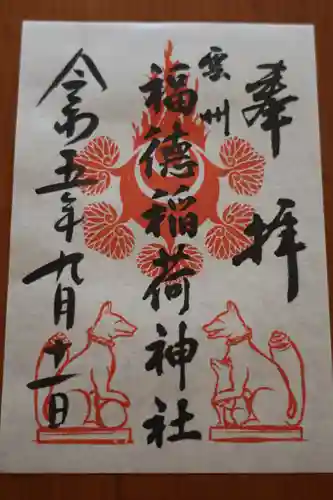 奉拝
雲州
福徳稲荷神社
令和五年九月十一日